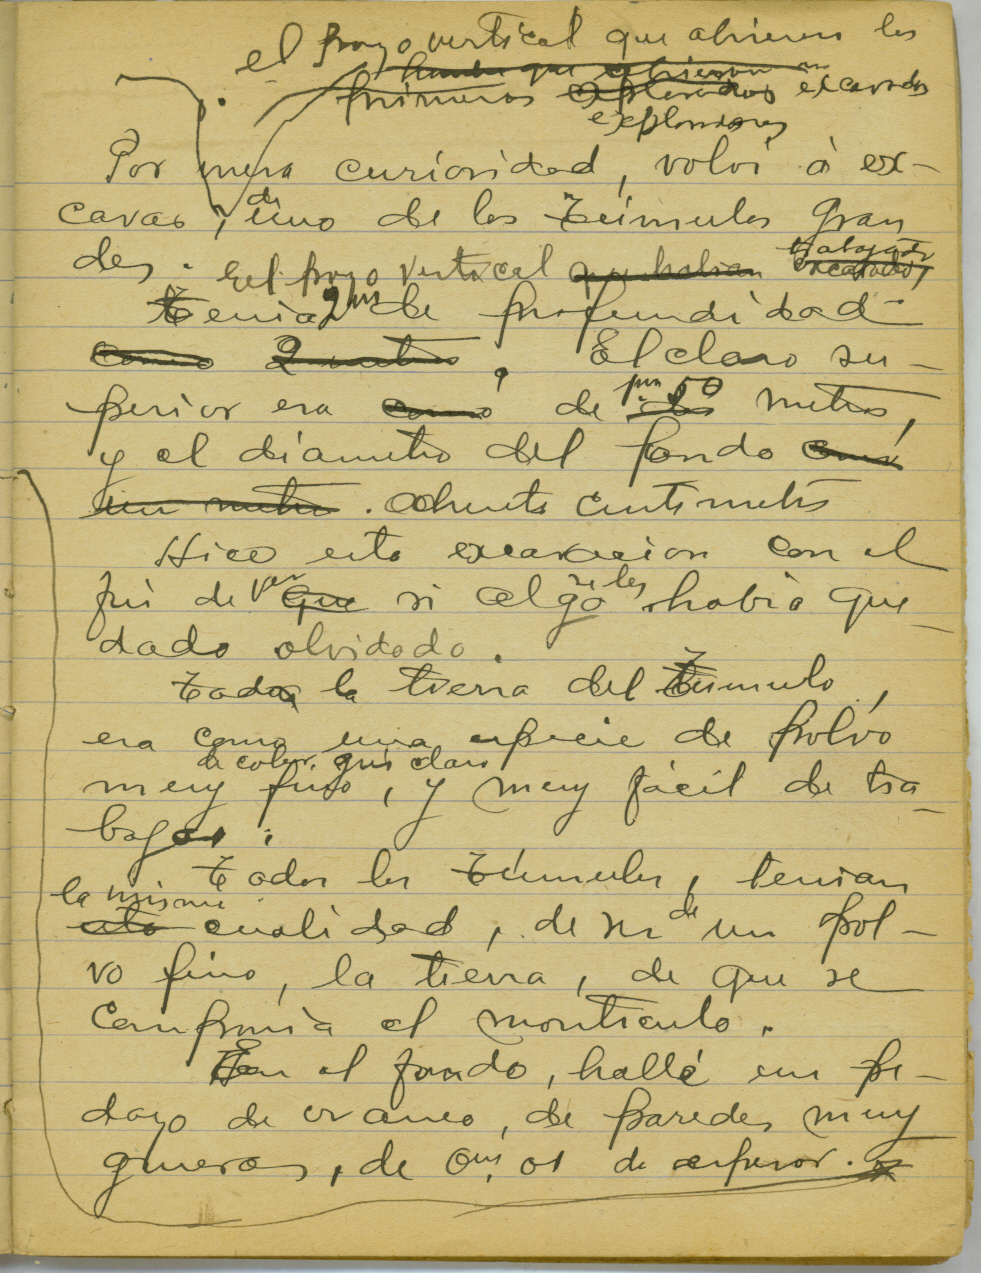 el pozo vertical que abrieron los
que abrieron
primeros exploradores excavado
exploradores
Por mera curiosidad, volví á ex-
cavar, de uno de los túmulos gran
des. El pozo vertical que habian trabajado excavado,
tenia 2 ms de profundidad
como 2 metros. El claro su-
perior era como de dos 50 metros,
y el diametro del fondo como
un metro. ochenta centimetros
Hice esta excavacion con el
fin de ver que si algo se les habia que
dado olvidado.
Toda la tierra del túmulo,
era como una especie de polvo
de color gris claro
muy fino, y muy fácil de tra
bajar.
Todos los túmulos, tenian
la misma
esta cualidad, de ser de un pol-
vo fino, la tierra, de que se
componia el monticulo.
En el fondo, hallé un pe-
dazo de craneo, de paredes muy
gruesas, de 0m,01 de espesor.